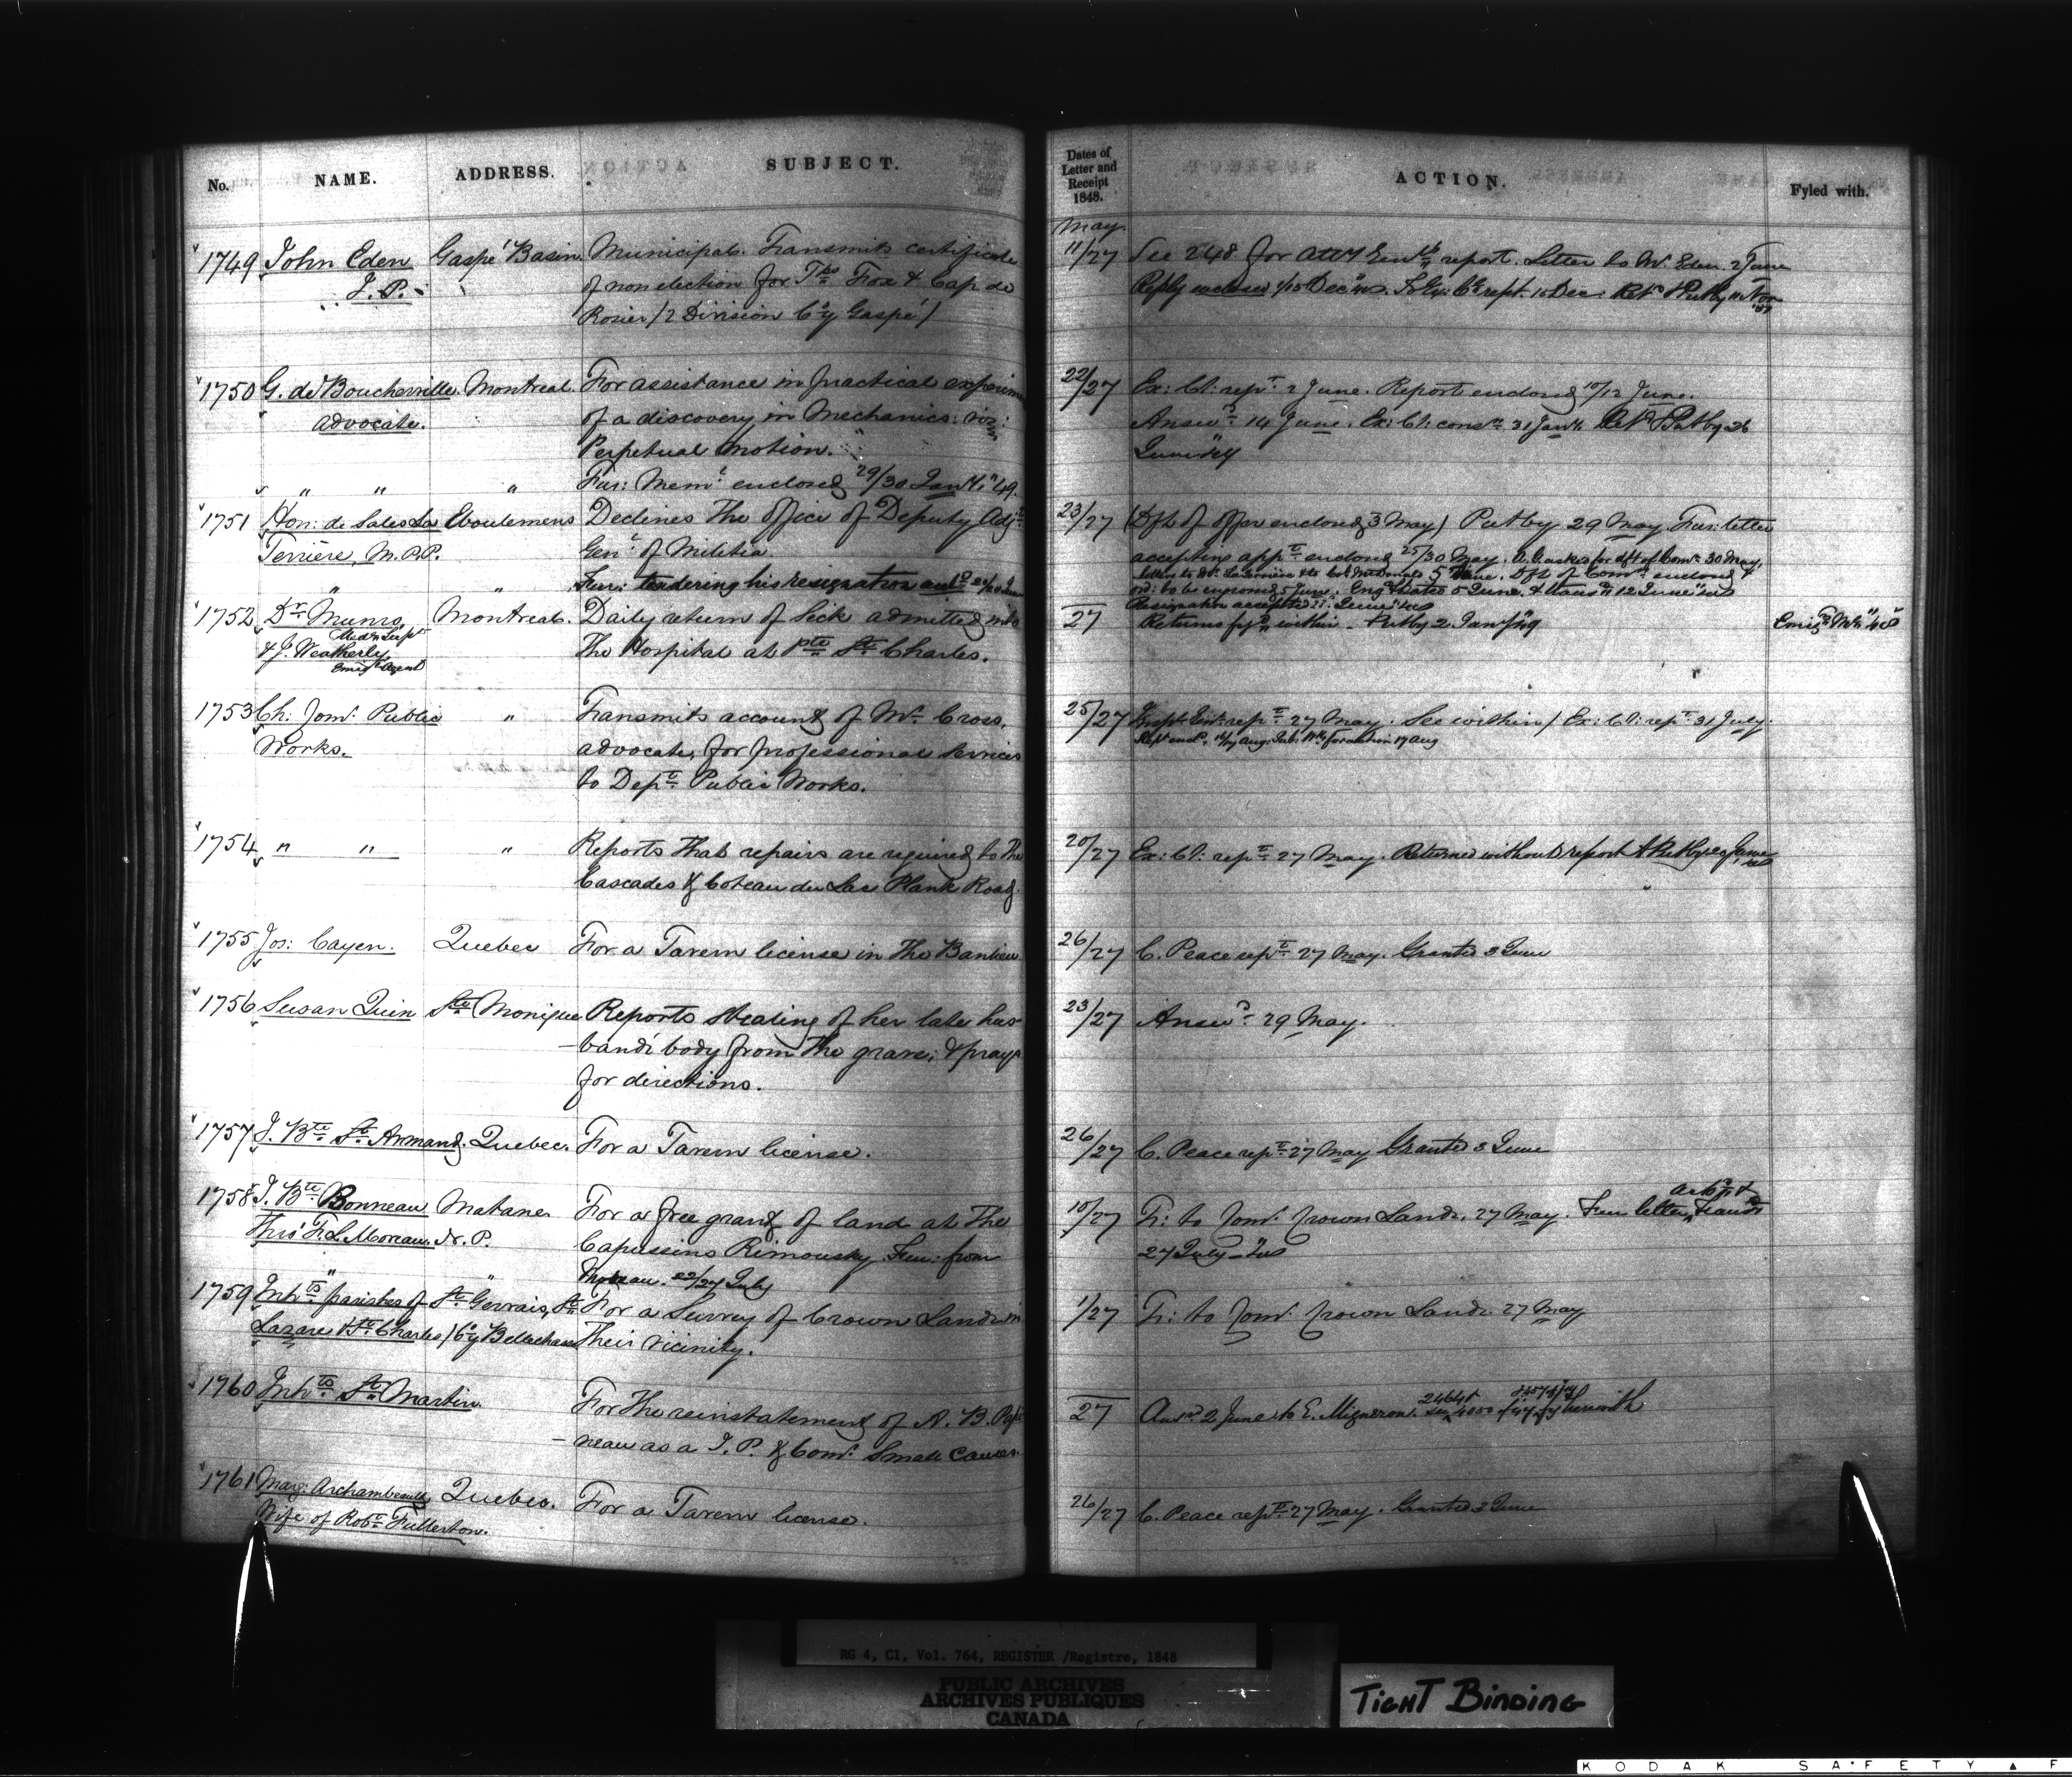 No. NAME. ADDRESS. SUBJECT.
1749 John Eden Gaspé Basin Municipal. Transmits certificate
J. P. of non election for Fox & Cap de
Rosier (2 Division Cy Gaspé)
1750 G. de Boucherville Montreal. For assistance in practical experim
advocate. of a discovery in Mechanics: viz:
Perpetual motion.
" " " Fur: Memt enclosed 29/30 " 49.
1751 Hon: de Sales La Eboulemens Declines the office of Deputy Adjt
Terrière, M.P.P. Genl of Militia.
" " Fur: tendering his resignation
1752 Dr Munro Montreal. Daily return of Sick admitted into
Medl Supt
& J. Weatherley, The Hospital at Pte St Charles.
Emigt Agent
1753 Ch: Comr Public " Transmits account of Mr Cross,
Works. advocate, for professional services
to Dept Public Works.
1754 " " " Reports that repairs are required to the
Cascades & Coteau du Lac Plank Road.
1755 Jos: Cayen. Quebec For a Tavern license in the Banlieu
1756 Susan Quin Ste Monique Reports stealing of her late hus-
-band's body from the grave; & prays
for directions.
1757 J. Bte St Armand. Quebec. For a Tavern license.
1758 J. Bte Bonneau Matane For a free grant of land at the
Thro' F. L. Moreau. N. P. Capucins Rimousky. Fur: from
" " 22/27 July
1759 Inhts parishes of St Gervais, St For a Survey of Crown Lands in
Lazare & St Charles) Cy Bellechasse Their vicinity.
1760 Inhts St Martin For the reinstatement of A. B. Papi
-neau as a J. P. & Comr Small Causes.
1761 Marg: Archambeault, Quebec. For a Tavern license.
Wife of Robt Fullerton.
Dates of
Letter and
Receipt
1848.
ACTION.
Fyled with.
May
11/27 See 248 for Atty Genl's report. Letter to Mr Eden. 2 June
22/27 Ex: Cl: rept 2 June. Report enclosed 10/12 June.
Answd 14 June. Ex: Cl: 31 Putby 26
23/27 (Dft of offer enclosed 3 May) Putby 29 May. Fur: letter
accepting appt enclosed 25/30 May. A.G. asks for dft of Comn 30 May,
Resignation accepted
27 Returns within. Putby 2 Jany 49 " 48
25/27 Inspt Genl: rept 27 May. See within / Ex: Cl: rept 31 July.
20/27 Ex: Cl: rept 27 May. Returned without report & Putby
26/27 C. Peace rept 27 May. Granted 3 June
23/27 Answd 29 May.
26/27 C. Peace rept 27 May Granted 3 June
10/27 Tr: to Comr Crown Lands. 27 May. Fur letter
27 July
1/27 Tr: to Comr Crown Lands. 27 May
27 Ansd 2 June to E. Migneron. herewith
26/27 C. Peace rept 27 May. Granted 3 June
RG 4, C1, Vol. 764, REGISTER /Registre, 1848
PUBLIC ARCHIVES
ARCHIVES PUBLIQUES
CANADA
TIGHT BINDING
KODAK SAFETY F